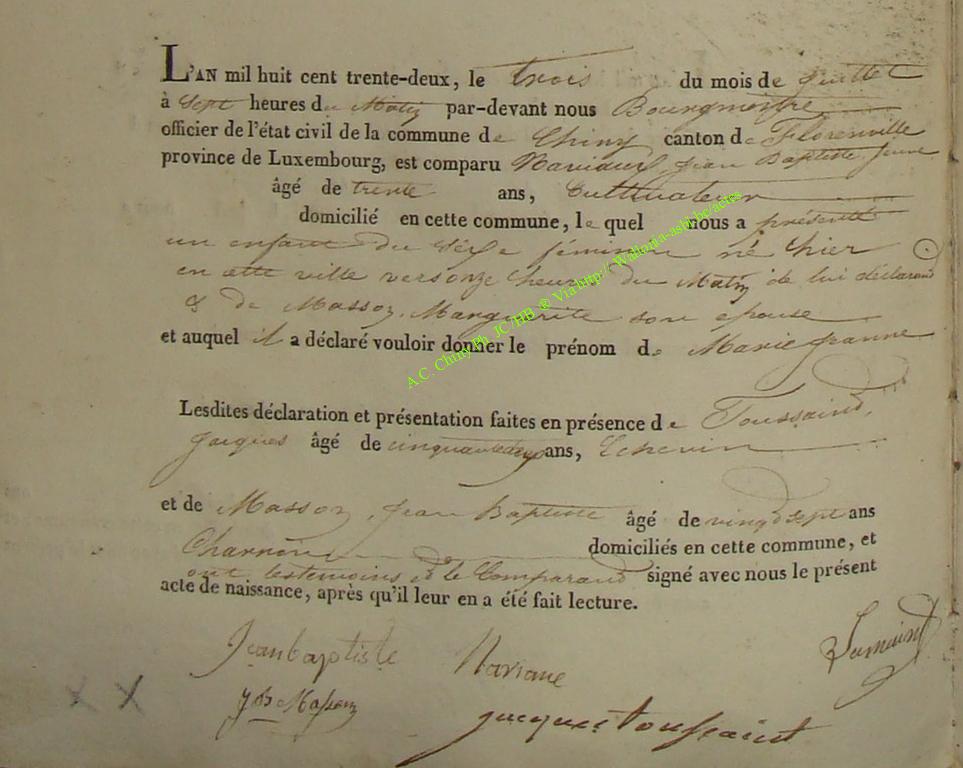 L'AN mil huit cent trente-deux, le trois du mois de Juillet
à Sept heures du Matin par-devant nous Bourgmestre
officier de l'état civil de la commune de Chiny canton de Florenville
province de Luxembourg, est comparu Jean Baptiste Jeune
âgé de trente ans, Cultivateur
domicilié en cette commune, le quel nous a présenté
un enfant du sexe féminin né hier
en cette ville vers onze heures du Matin de lui déclarand
& de Masson, Marguerite son epouse
et auquel il a déclaré vouloir donner le prénom de Marie Jeanne
A.C. Chiny Ph JC/HB ® Via http://Wallonia-asbl.be/actes
Lesdites déclaration et présentation faites en présence de Toussaind,
Jacques âgé de cinquantedeux ans, Echevin
et de Masson, Jean Baptiste âgé de vingd sept ans
Charron domiciliés en cette commune, et
ont les temoins et le Comparand signé avec nous le présent
acte de naissance, après qu'il leur en a été fait lecture.
Jean baptiste
JB Masson
jacques toussaint
X X